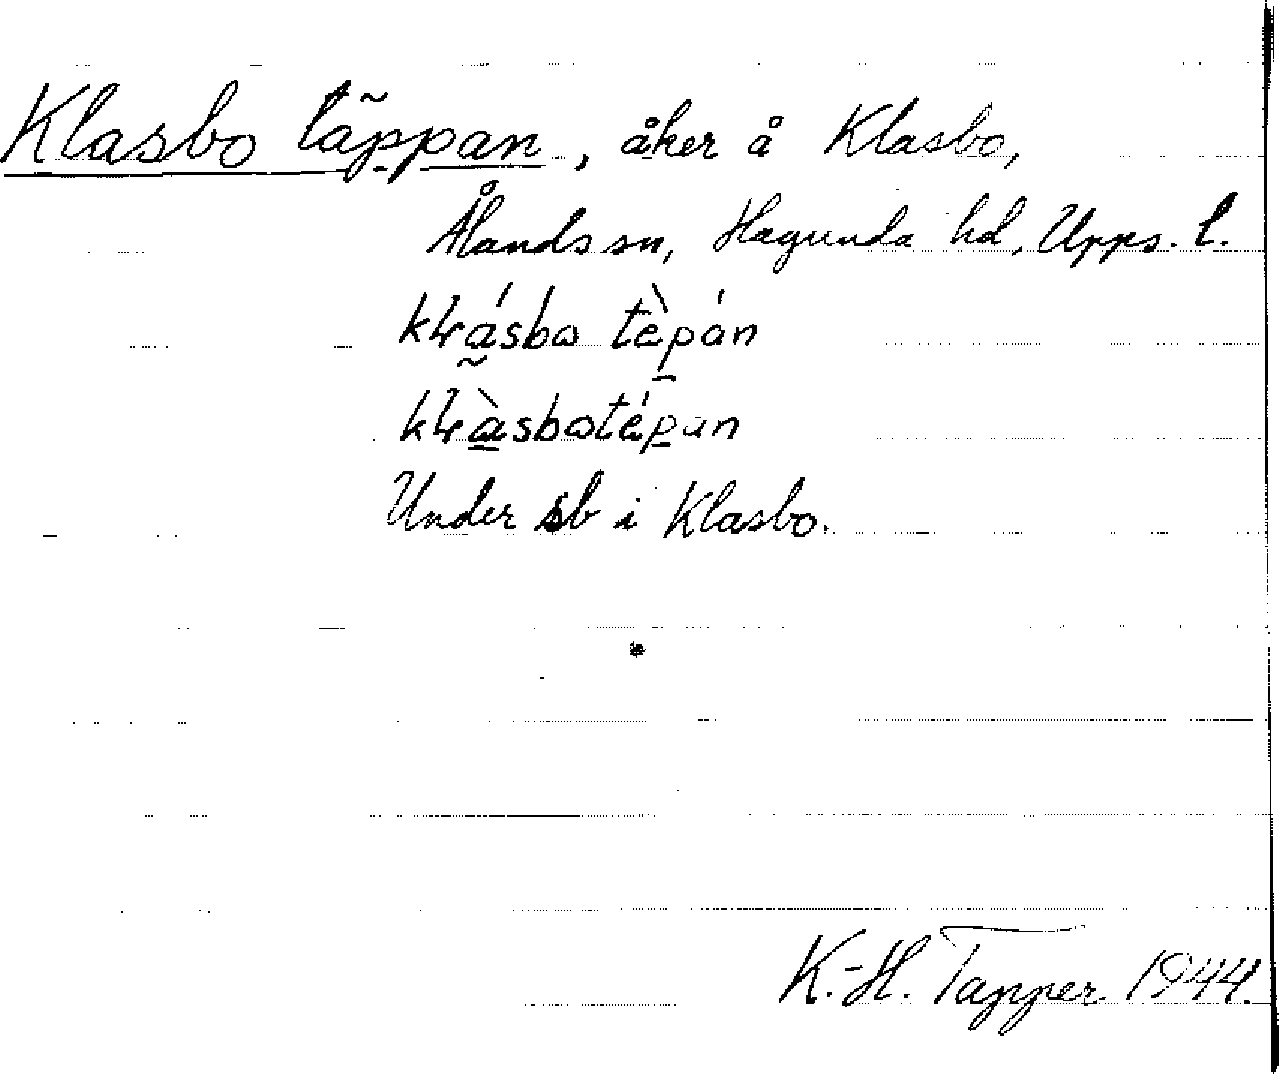 Klasbo täppan, åker å Klasbo,
Ålands sn, Hagunda hd, Upps. l.
Under sb i Klasbo.
K.-H. Tapper 1944.